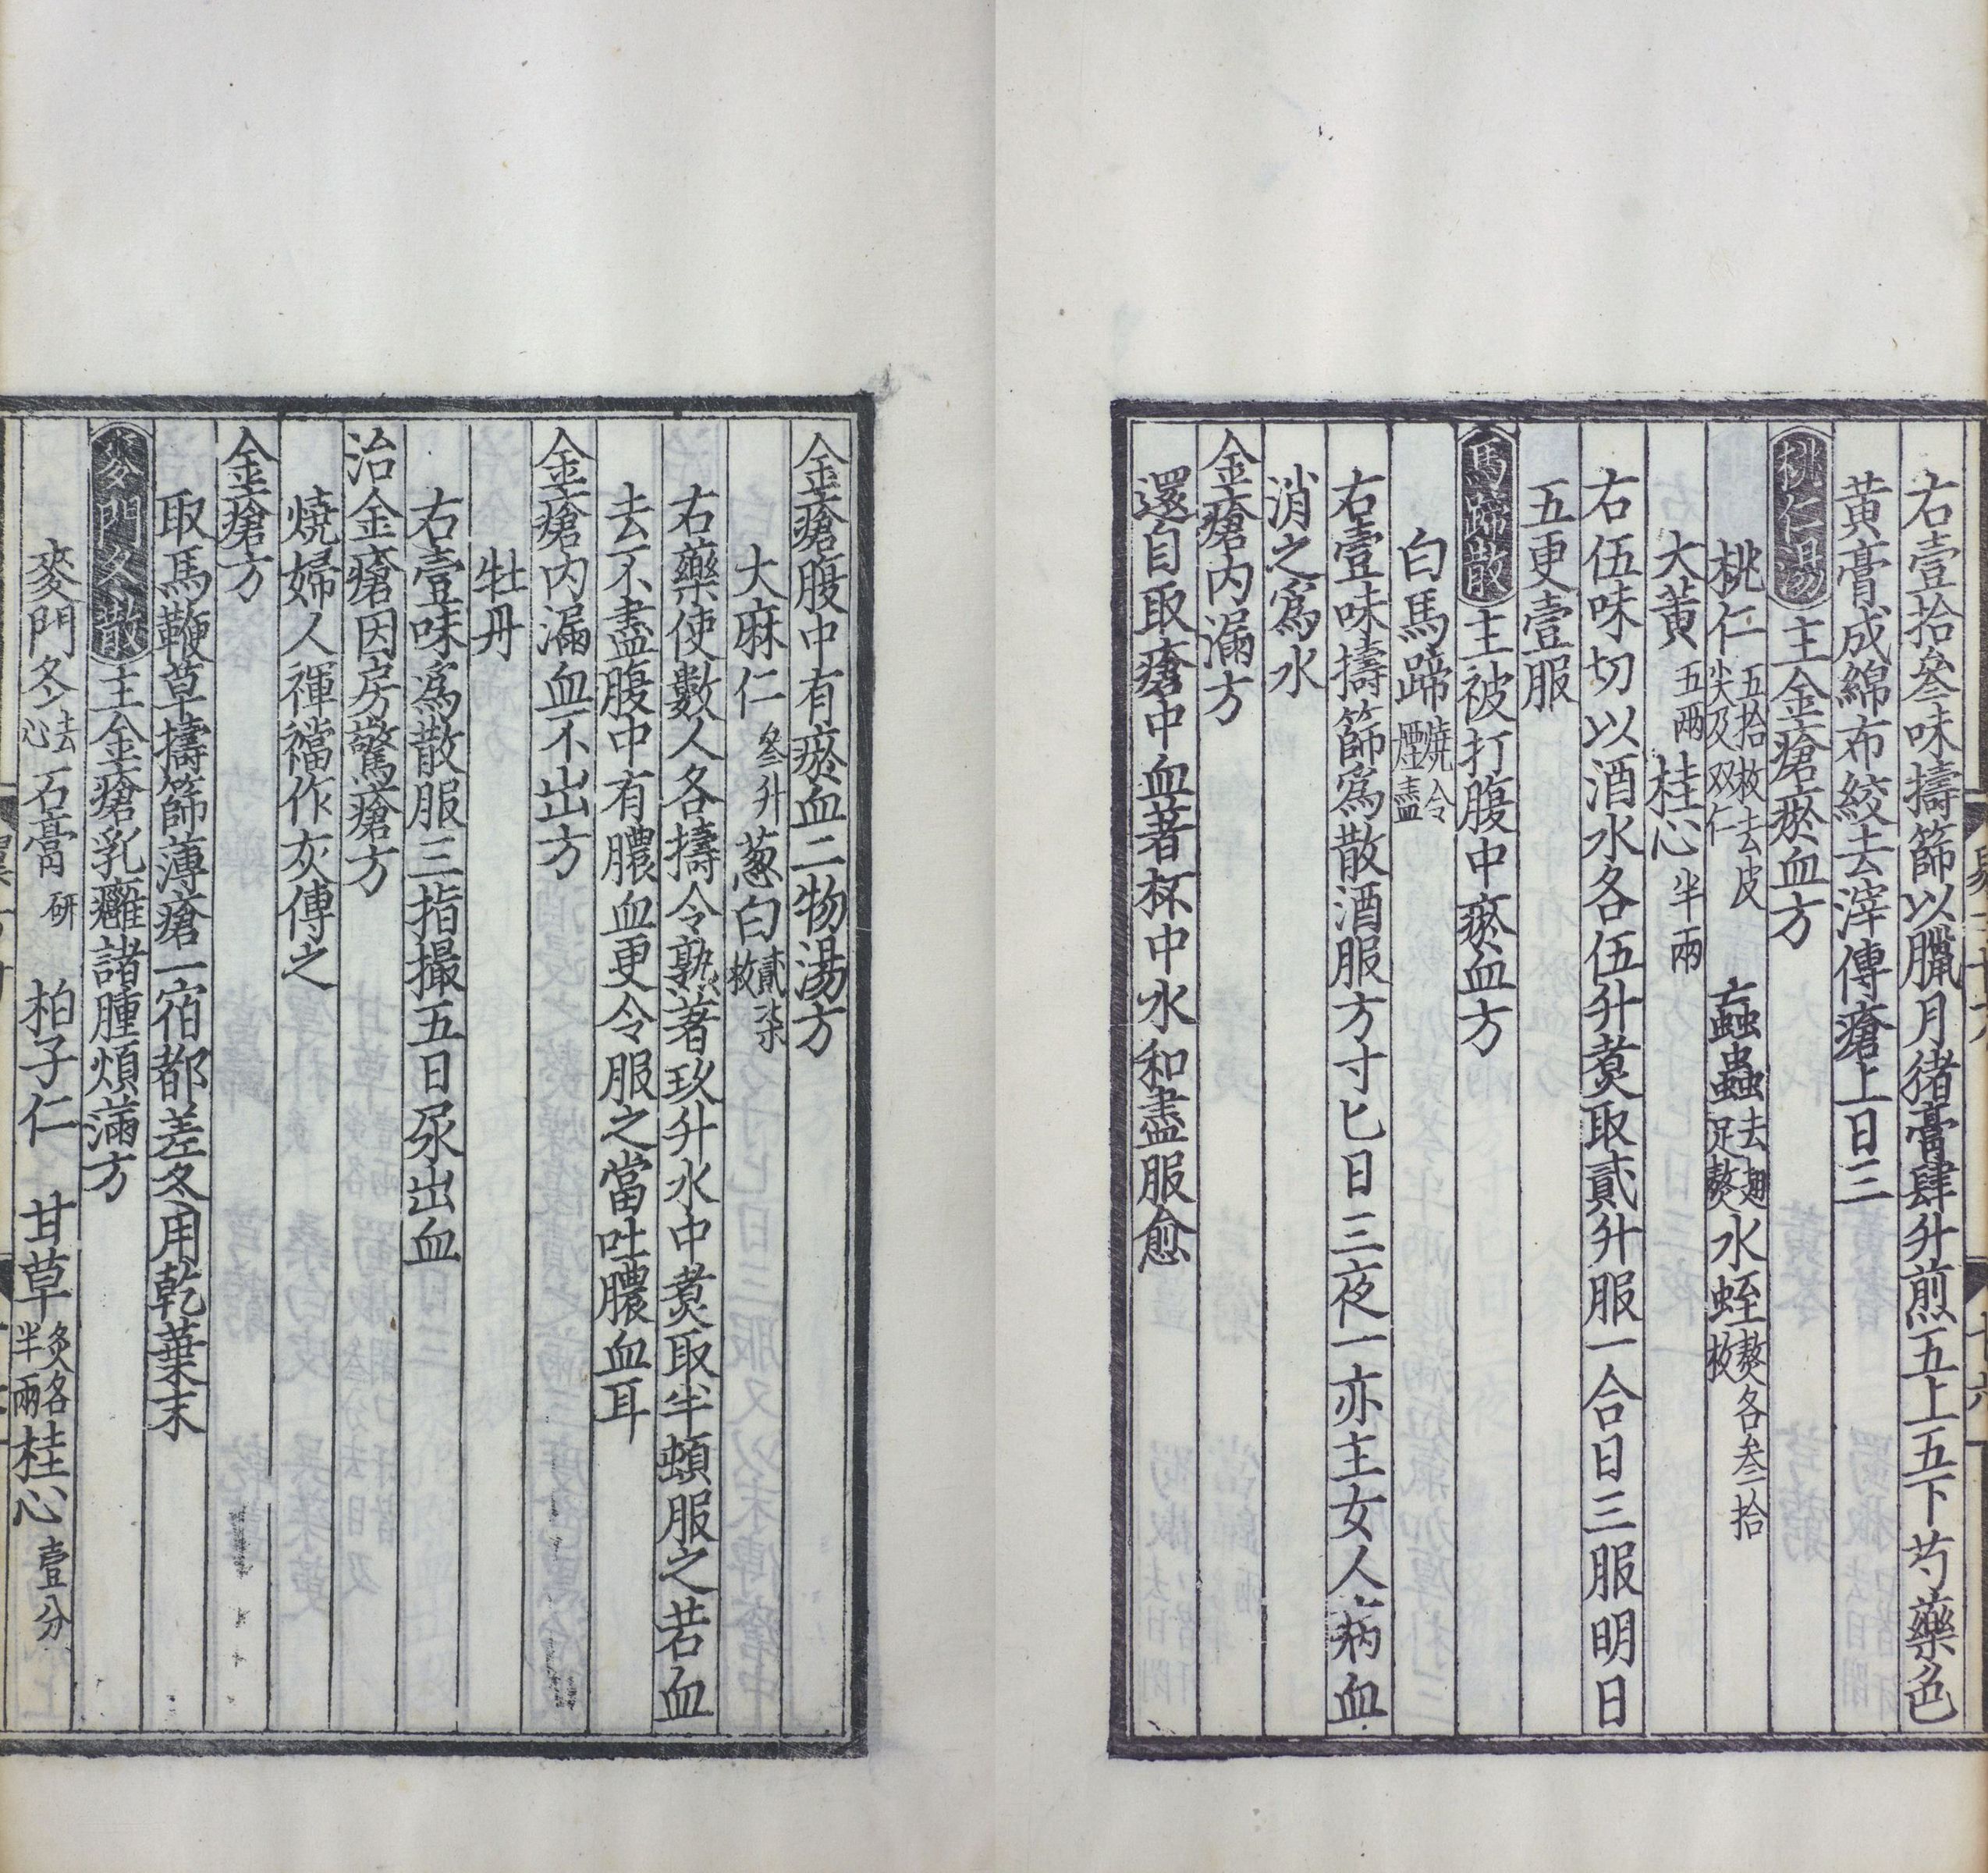 右壹拾叄味擣篩以臘月猪膏肆升煎五上五下芍藥色
黃膏成綿布絞去滓傅瘡上日三
桃仁湯主金瘡瘀血方
桃仁五拾枚去皮尖及双仁 蝱蟲去翅足熬水蛭熬各叁拾枚
大黃五兩桂心半兩
右伍味切以酒水各伍升煑取貳升服一合日三服明日
五更壹服
馬蹄散主被打腹中瘀血方
白馬蹄燒令煙盡
右壹味擣篩爲散酒服方寸匕日三夜一亦主女人病血
消之爲水
金瘡內漏方
還自取瘡中血著杯中水和盡服愈
金瘡腹中有瘀血二物湯方
大麻仁叄升葱白貳柒枚
右藥使數人各擣令熟著玖升水中煑取半頓服之若血
去不盡腹中有膿血更令服之當吐膿血耳
金瘡內漏血不出方
牡丹
右壹味爲散服三指撮五日尿出血
治金瘡因房驚瘡方
燒婦人褌襠作灰傅之
金瘡方
取馬鞭草擣篩薄瘡一宿都差冬用乾葉末
麥門冬散主金瘡乳癰諸腫煩滿方
麥門冬去心石膏研 柏子仁 甘草炙各半兩桂心壹分